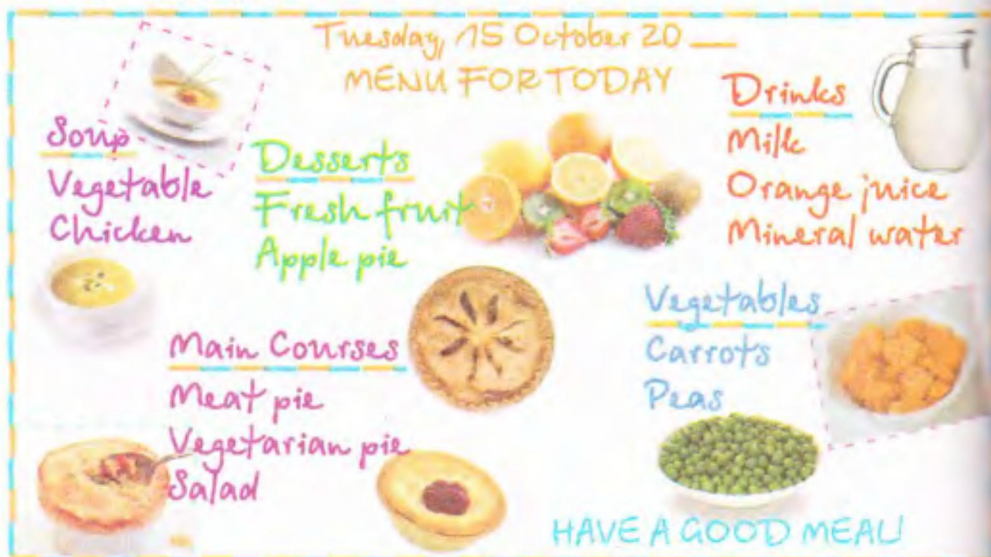 Tuesday, 15 October 20__
MENU FOR TODAY
Soup
Vegetable
Chicken
Desserts
Fresh fruit
Apple pie
Drinks
Milk
Orange juice
Mineral water
Main Courses
Meat pie
Vegetarian pie
Salad
Vegetables
Carrots
Peas
HAVE A GOOD MEAL!